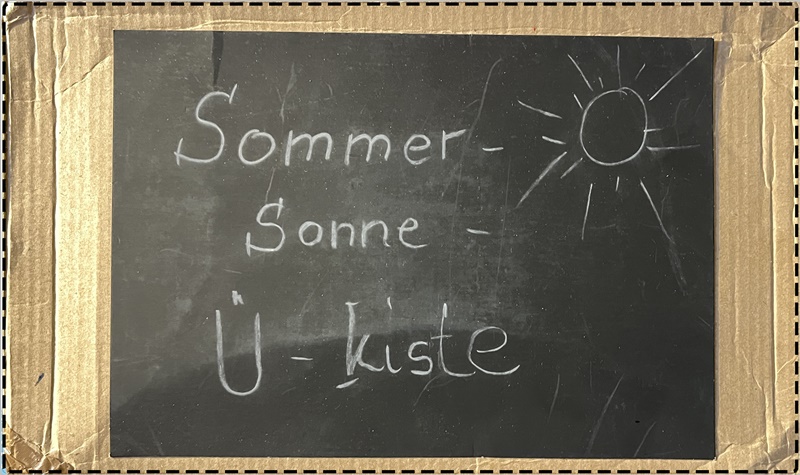 Sommer -
Sonne -
Ü - kiste